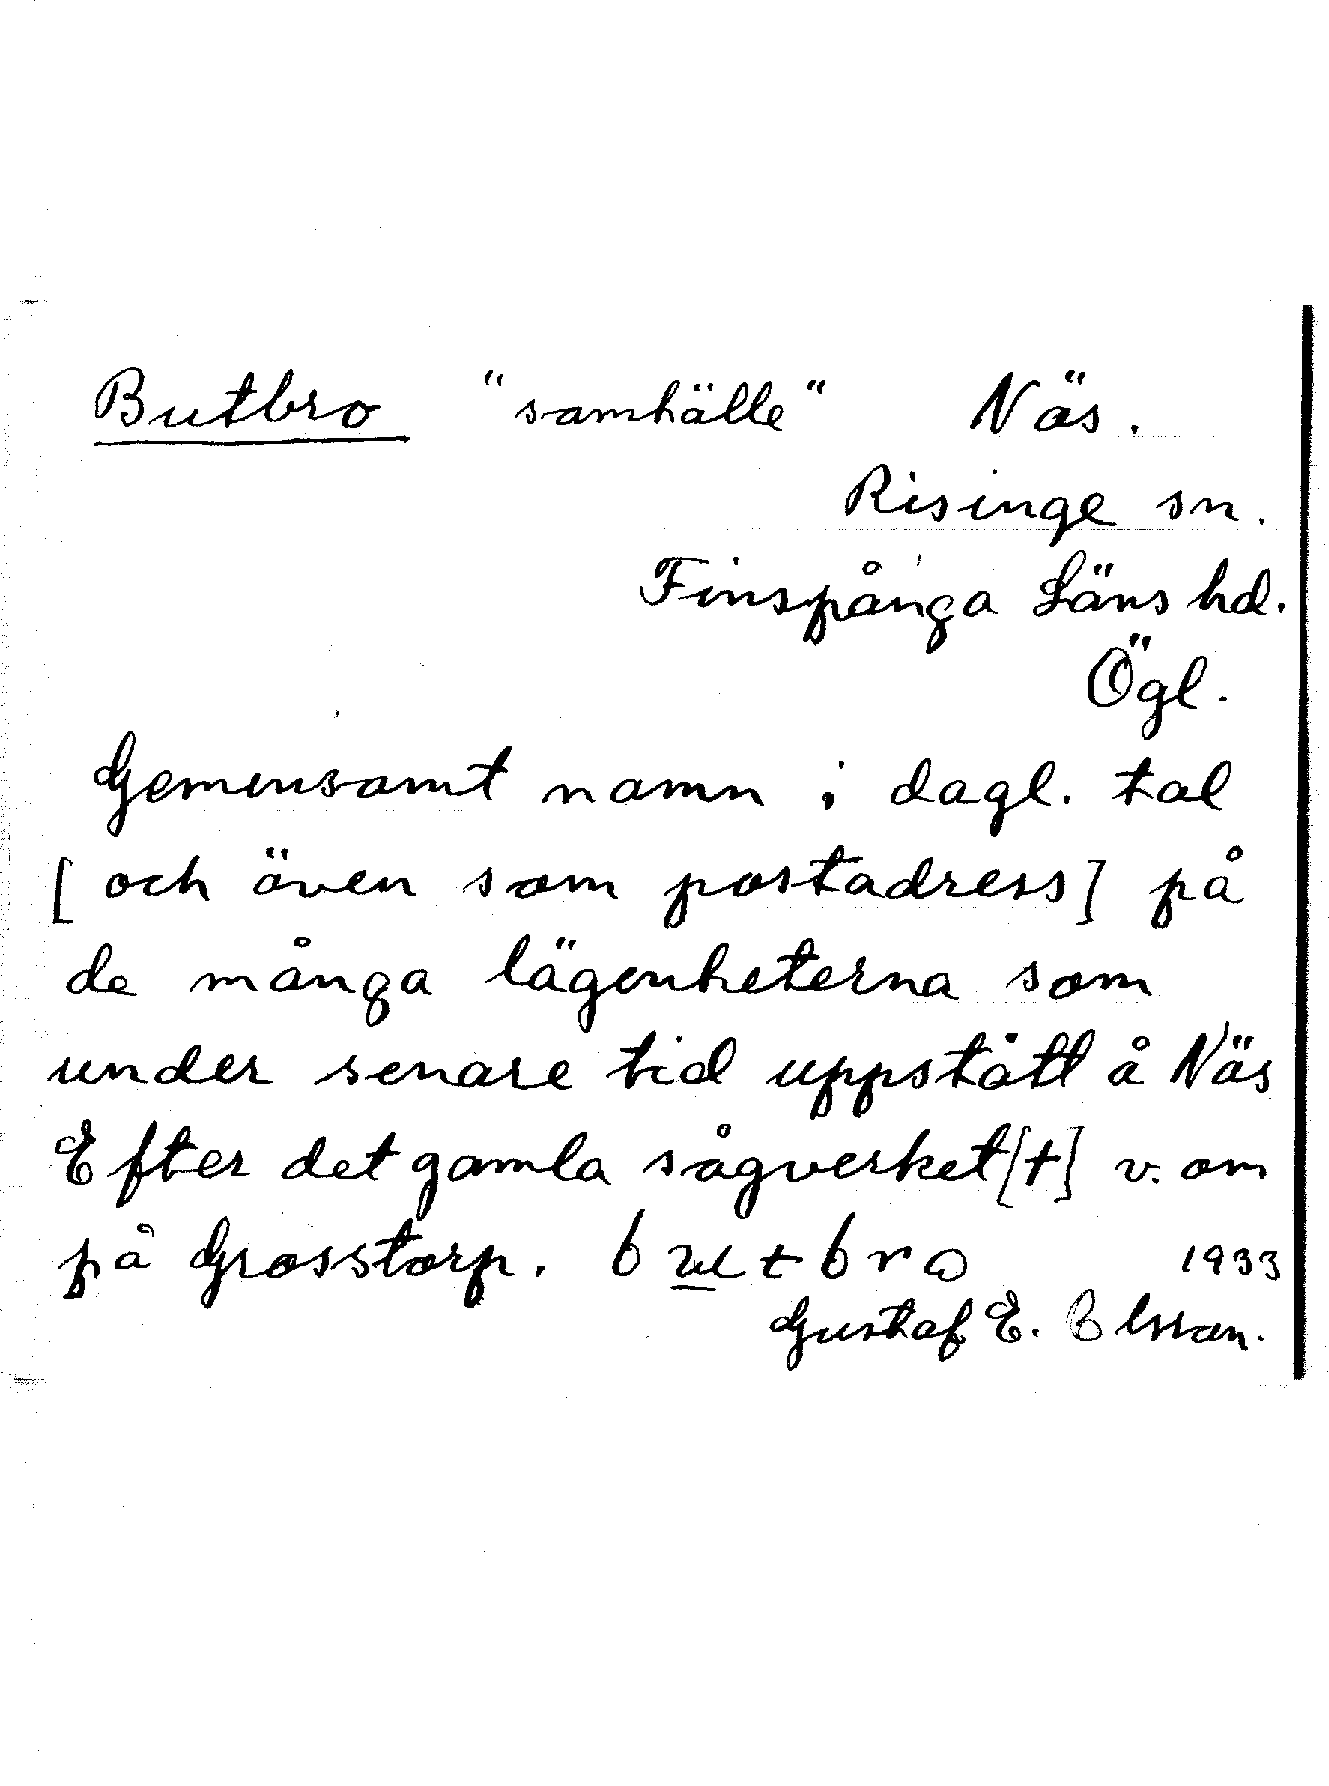 Butbro "samhälle" Näs.
Risinge sn.
Finspånga Läns hd.
Ögl.
Gemensamt namn i dagl. tal
[och även som postadress] på
de många lägenheterna som
under senare tid uppstått å Näs
Efter det gamla sågverket [†] v. om
på Grosstorp. 1933
Gustaf E.